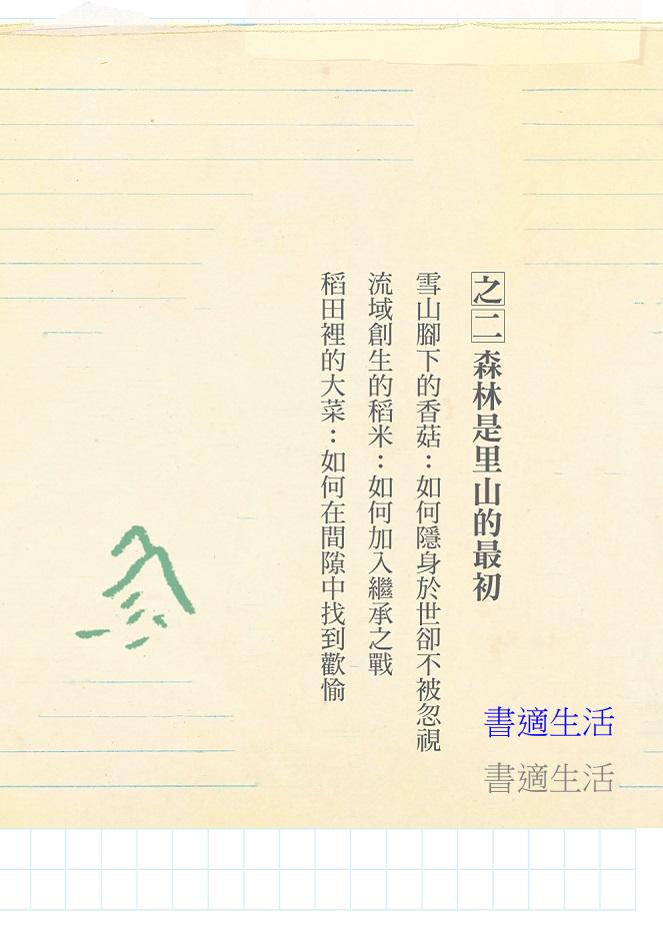 之二 森林是里山的最初
雪山腳下的香菇：如何隱身於世卻不被忽視
流域創生的稻米：如何加入繼承之戰
稻田裡的大菜：如何在間隙中找到歡愉
書適生活
書適生活